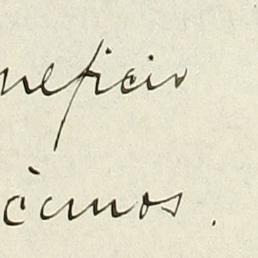 neficio
cemos.